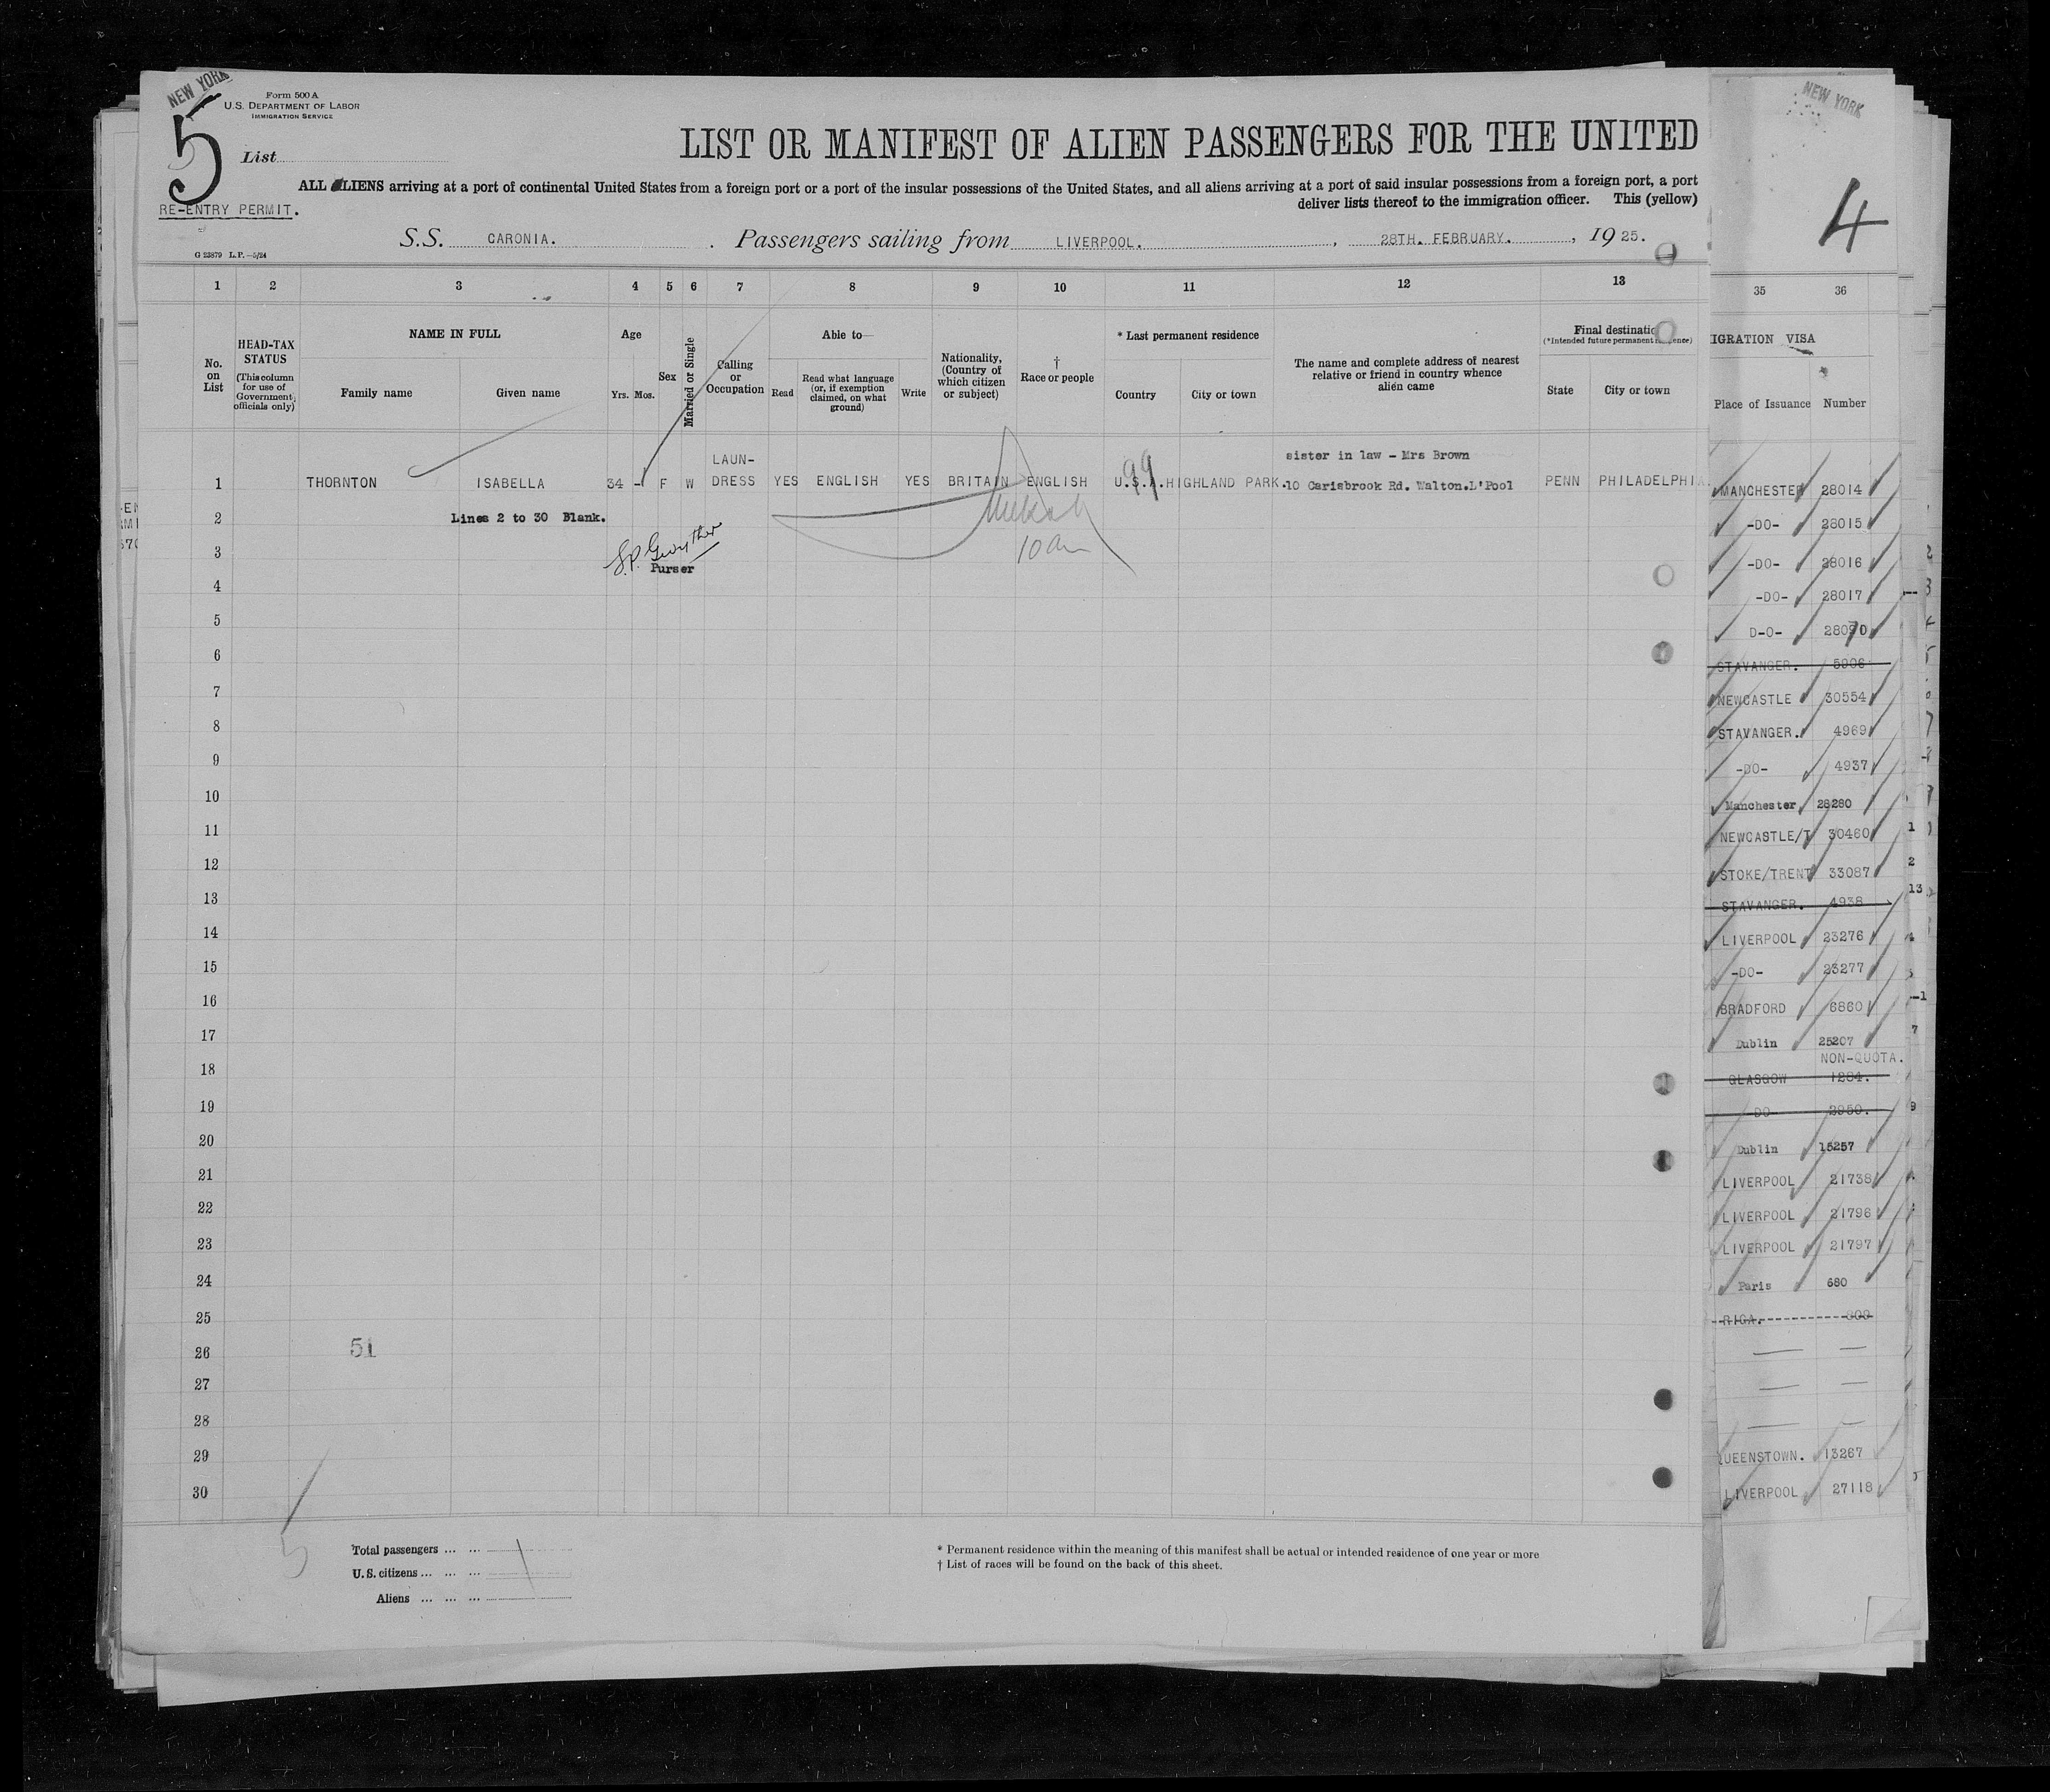 NEW YORK
5
Form 500 A
U.S. DEPARTMENT OF LABOR
IMMIGRATION SERVICE
List
LIST OR MANIFEST OF ALIEN PASSENGERS FOR THE UNITED
ALL ALIENS arriving at a port of continental United States from a foreign port or a port of the insular possessions of the United States, and all aliens arriving at a port of said insular possessions from a foreign port, a port
deliver lists thereof to the immigration officer. This (yellow)
RE-ENTRY PERMIT.
S.S. CARONIA. Passengers sailing from LIVERPOOL. , 28TH. FEBRUARY. , 19 25.
G 23879 L.P.—5/24
1 2 3 4 5 6 7 8 9 10 11 12 13
No. on List
HEAD-TAX STATUS (This column for use of Government officials only)
NAME IN FULL
Family name
Given name
Age
Yrs. Mos.
Sex
Married or Single
Calling or Occupation
Able to—
Read
Read what language (or, if exemption claimed, on what ground)
Write
Nationality, (Country of which citizen or subject)
† Race or people
* Last permanent residence
Country
City or town
The name and complete address of nearest relative or friend in country whence alien came
Final destinatio
(*Intended future permanent
State
City or town
1 THORNTON ISABELLA 34 - F W LAUN-DRESS YES ENGLISH YES BRITAIN ENGLISH U.S.A. HIGHLAND PARK. sister in law - Mrs Brown 10 Carisbrook Rd. Walton.L'Pool PENN PHILADELPHI
99
2 Lines 2 to 30 Blank.
3
10 am
Purser
4
5
6
7
8
9
10
11
12
13
14
15
16
17
18
19
20
21
22
23
24
25
26
51
27
28
29
30
5
Total passengers ... ... 1
U.S. citizens ... ... ...
Aliens ... ... ...
* Permanent residence within the meaning of this manifest shall be actual or intended residence of one year or more
† List of races will be found on the back of this sheet.
NEW YORK
4
35 36
IGRATION VISA
Place of Issuance Number
MANCHESTER 28014
-DO- 28015
-DO- 28016
-DO- 28017
D-O- 28070
STAVANGER. 5906
NEWCASTLE 30554
STAVANGER. 4969
-DO- 4937
Manchester 28280
NEWCASTLE/T 30460
STOKE/TRENT 33087
STAVANGER. 4938
LIVERPOOL 23276
-DO- 23277
BRADFORD 6860
Dublin 25207
NON-QUOTA.
GLASGOW 1284.
DO 2950.
Dublin 15257
LIVERPOOL 21738
LIVERPOOL 21796
LIVERPOOL 21797
Paris 680
RIGA.
QUEENSTOWN. 13267
LIVERPOOL 27118